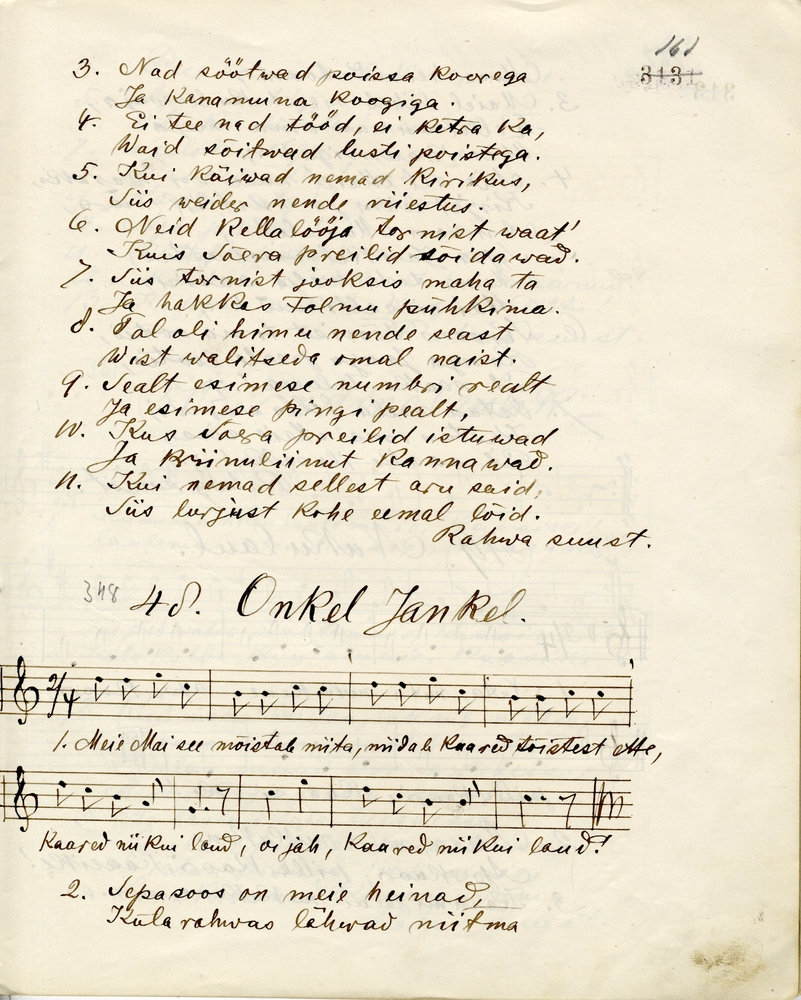 161
3131
3. Nad söötwad poissa koorega
Ja kanamuna koogiga.
4. Ei tee nad tööd, ei ketra ka,
Waid sõitwad lusti poistega.
5. Kui käiwad nemad kirikus,
Siis weider nende riiestus.
6. Neid kellalööja tornist waat'
Kuis Sõera preilid sõidawad.
7. Siis tornist jooksis maha ta
Ja hakkas tolmu pühkima.
8. Tal oli himu nende seast
Wist walitseda omal naist.
9. Sealt esimese numbri realt
Ja esimese pingi pealt,
10. Kus Sõera preilid istuwad
Ja kriinuliinut kannawad.
11. Kui nemad sellest aru said,
Siis lurjust kohe eemal lõid.
Rahwa suust.
348 48. Onkel Jankel.
2/4
1. Meie Mai see mõistab niita, niidab kaared tõistest ette,
Kaared nii kui laud, oi jah, kaared nii kui laud!
2. Sepasoos on meie heinad,
Küla rahwas lähwad niitma